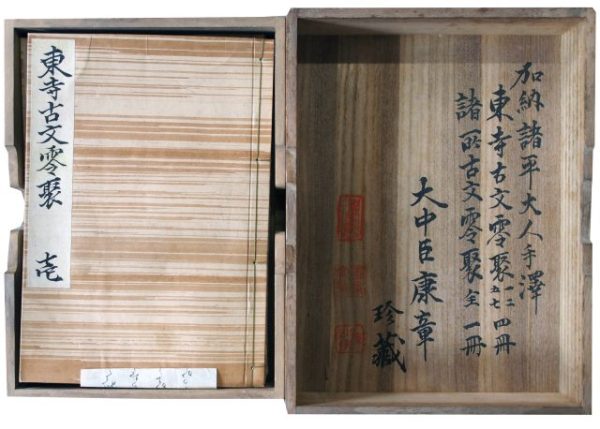 東寺古文零聚 壱
加納諸平大人手澤
東寺古文零聚一二五七四冊
諸所古文零聚全一冊
大中臣康章
珍藏